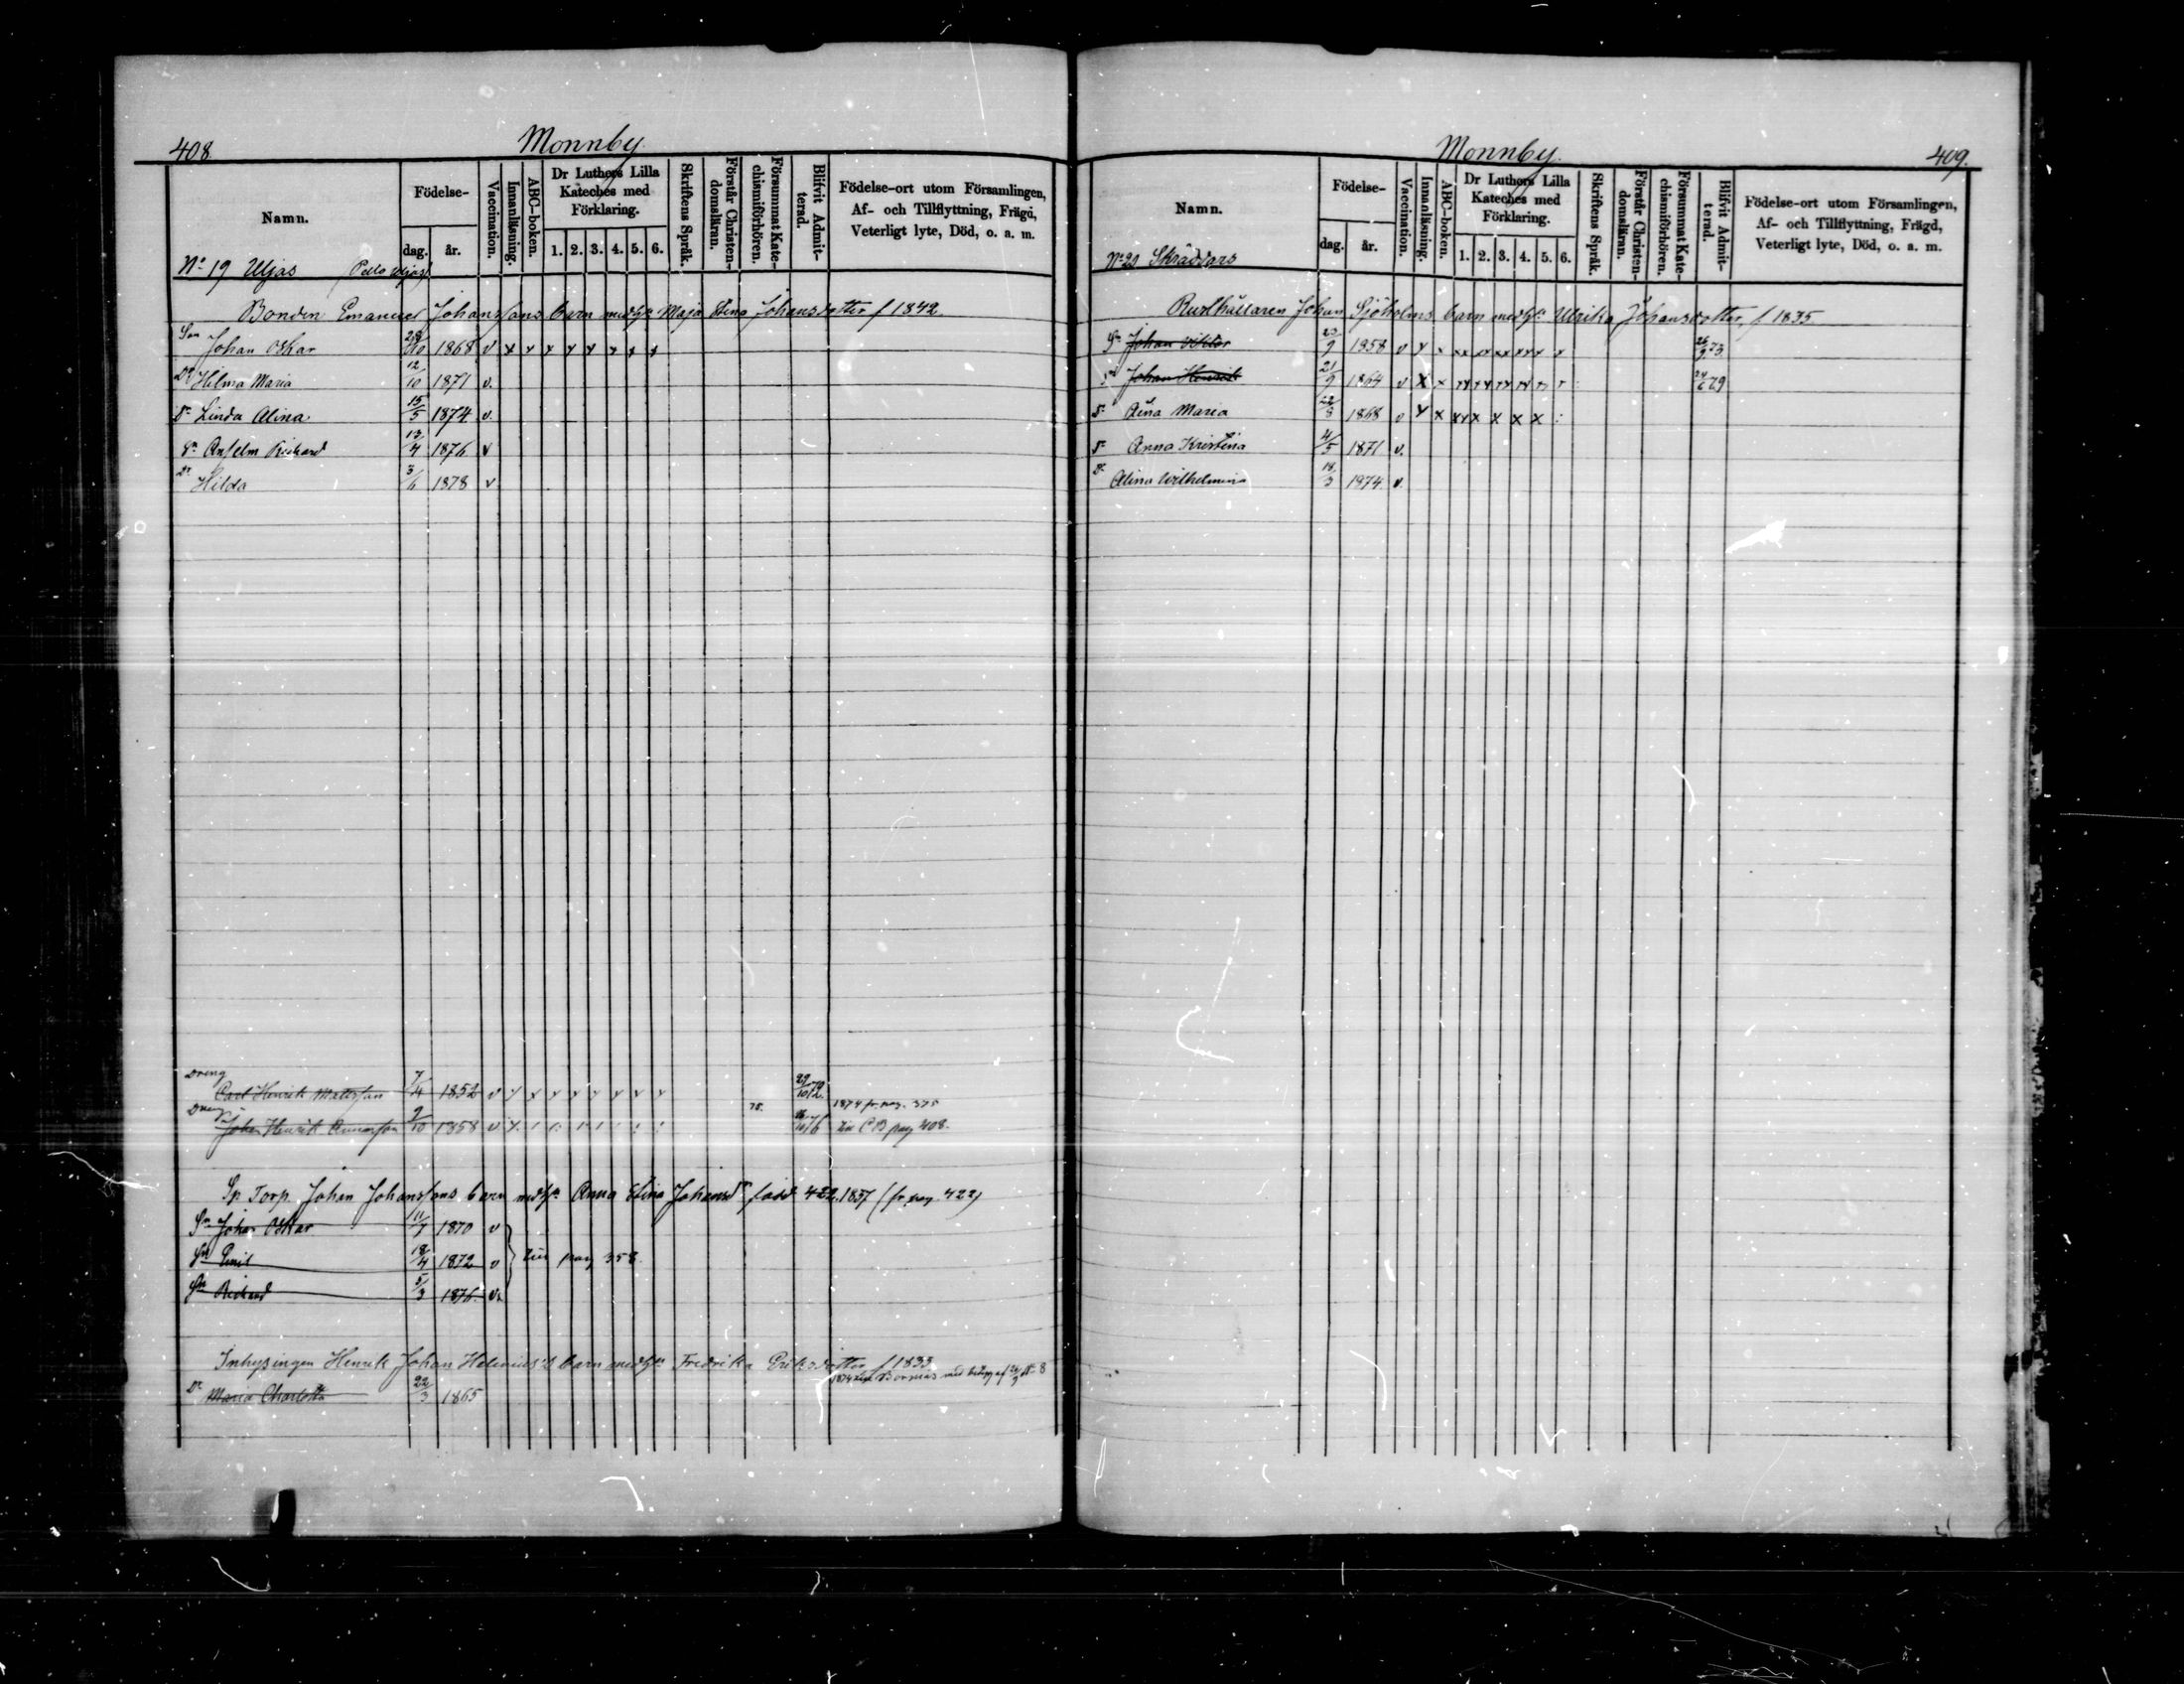 408.
Monnby.
Namn.
Födelse-
dag.
år.
Vaccination.
Innanläsning.
ABC-boken.
Dr Luthers Lilla Kateches med Förklaring.
1. 2. 3. 4. 5. 6.
Skriftens Språk.
Förstår Christendomsläran.
Försummat Katechismiförhören.
Blifvit Admitterad.
Födelse-ort utom Församlingen, Af- och Tillflyttning, Frägd, Veterligt lyte, Död, o. a. m.
No 19 Uljas (Pello Uljas)
Bonden Emanuel Johanssons barn med h: Maja Stina Johansdotter f 1842.
Son Johan Oskar 28/10 1868 v x x x x x x x x
Dr Hilma Maria 12/10 1871 v.
Dr Linda Alina 15/5 1874 v.
Sn Anselm Richard 13/4 1876 v
Dr Hilda 3/6 1878 v
Dreng Carl Henrik Matsson 7/4 1852 v x x x x x x x x 29/10 72.
Dreng Johan Henrik 9/10 1858 v 75. 76 1874 fr. pag. 375
Till CB pag 408.
Sp Torp. Johan Johanssons barn med h: Anna Stina Johansdr född 1837 (fr pag. 422)
Sn Johan Oskar 11/7 1870 v
Sn Emil 18/4 1872 v } till pag 358.
Sn Richard 5/3 1876. v.
Inhysingen Henrik Johan Helenius's barn med h: Fredrika Eriksdotter f 1833
Dr Maria Charlotta 22/3 1865
409.
Monnby.
Namn.
Födelse-
dag.
år.
Vaccination.
Innanläsning.
ABC-boken.
Dr Luthers Lilla Kateches med Förklaring.
1. 2. 3. 4. 5. 6.
Skriftens Språk.
Förstår Christendomsläran.
Försummat Katechismiförhören.
Blifvit Admitterad.
Födelse-ort utom Församlingen, Af- och Tillflyttning, Frägd, Veterligt lyte, Död, o. a. m.
No 20 Skräddars
Rusthållaren Johan Sjöholms barn med h: Ulrika Johansdotter, f 1835
Sn Johan Viktor 23/9 1858 v x x xx xx xx x x 73
Sn Johan Henrik 21/9 1864 v x x 24/6 79
Dr Lina Maria 22/8 1868 v x x xx x x x x :
Dr Anna Kristina 4/5 1871 v.
Dr Alina Wilhelmina 18/3 1874 v.